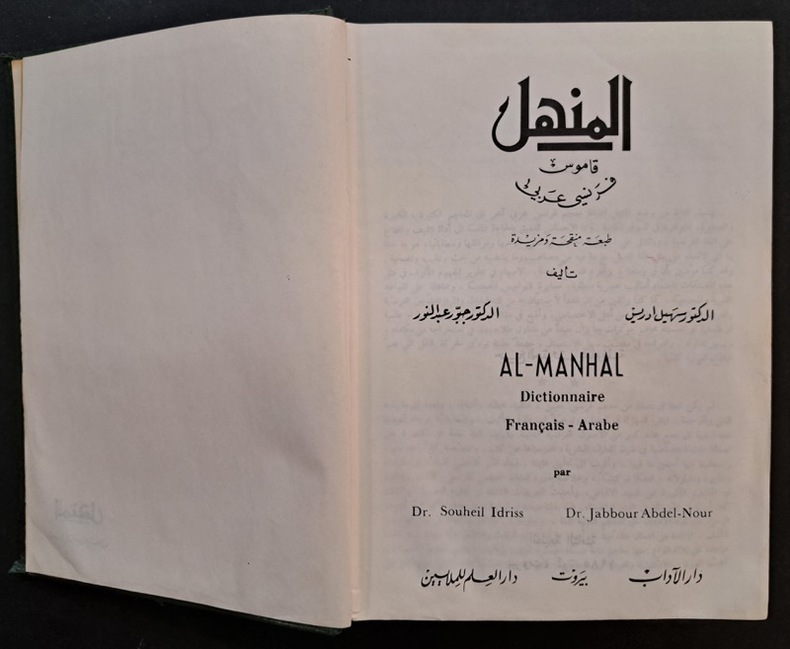 المنهل
قاموس
فرنسي عربي
طبعة منقحة ومزيدة
تأليف
الدكتور سهيل ادريس الدكتور جبور عبد النور
AL-MANHAL
Dictionnaire
Français - Arabe
par
Dr. Souheil Idriss Dr. Jabbour Abdel-Nour
دار الآداب بيروت دار العلم للملايين